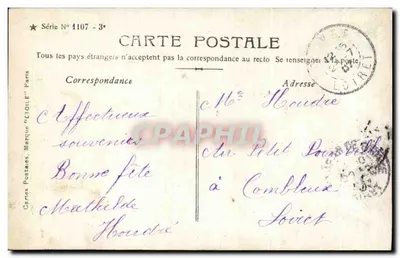 ★ Série N° 1107 - 3*
CARTE POSTALE
Tous les pays étrangers n'acceptent pas la correspondance au recto Se renseigner à la poste
Correspondance
Adresse
Affectueux
souvenirs
Bonne fête
Mathilde
Houdré
Mme Houdré
Au Petit
à Combleux
Loiret
Cartes Postales, Marque "ETOILE" Paris
LOIRET